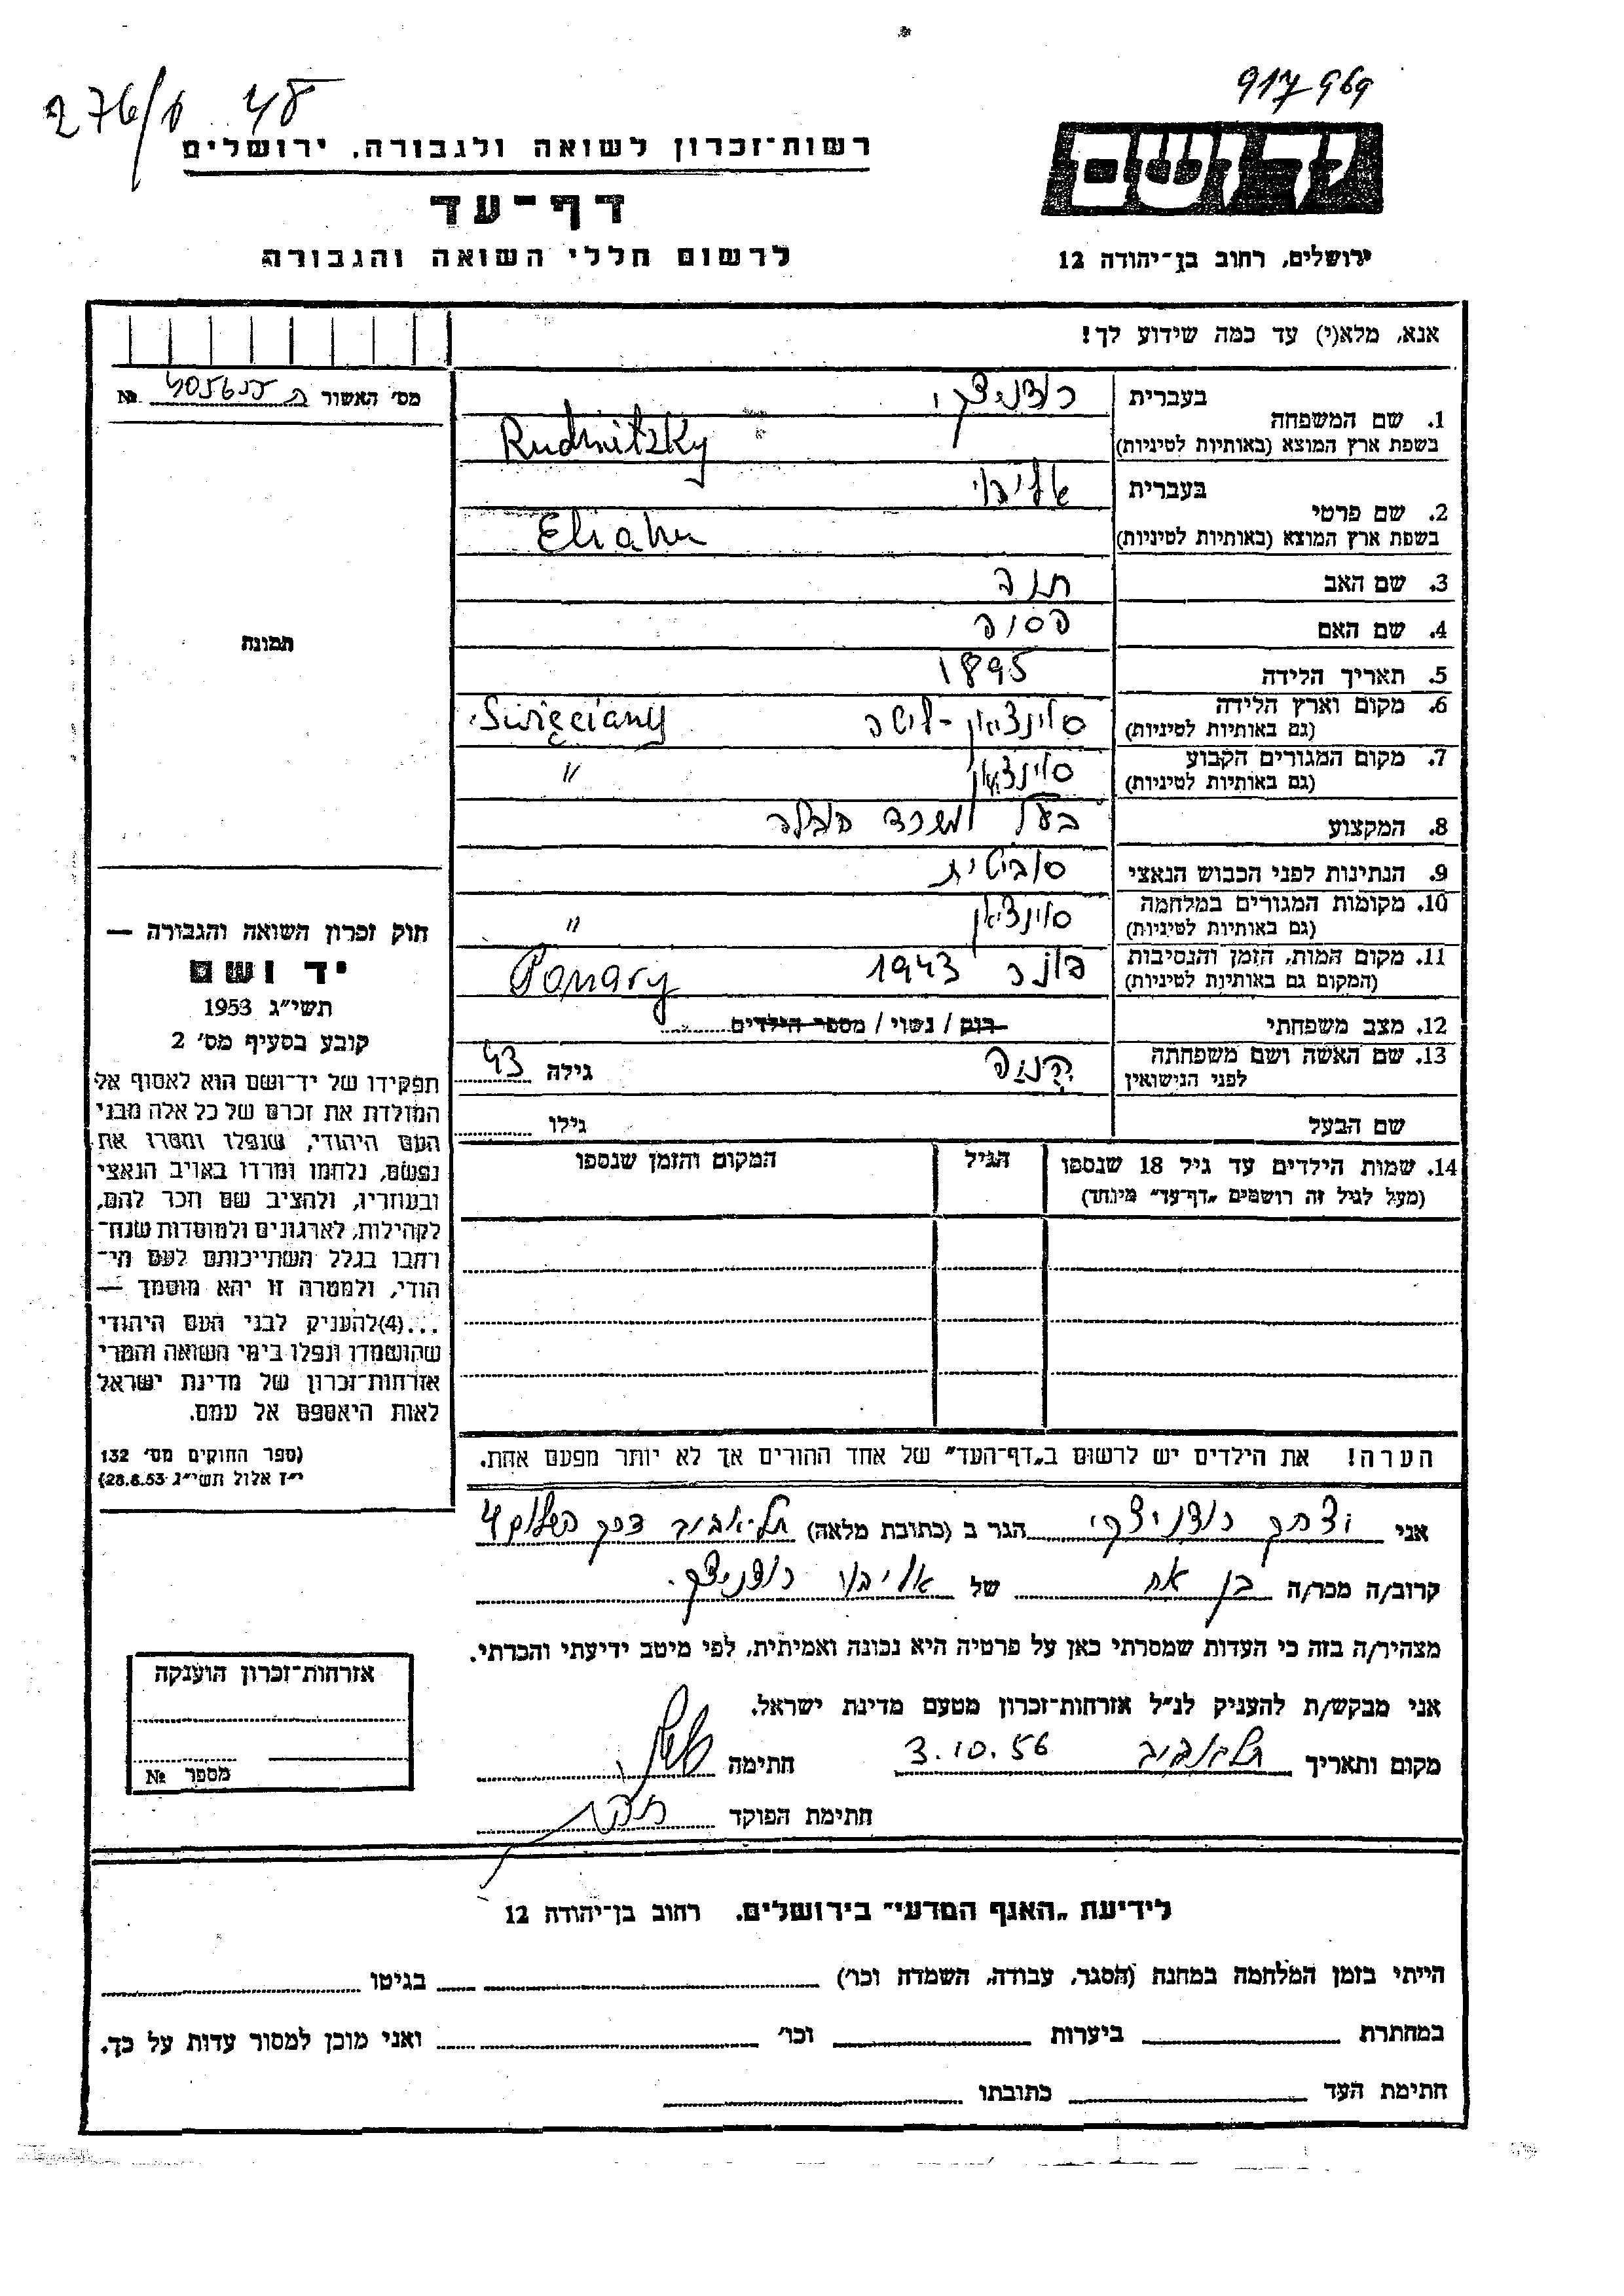 917969
276/ 48
יד ושם
רשות־זכרון לשואה ולגבורה. ירושלים
דף־עד
לרשום חללי השואה והגבורה
ירושלים, רחוב בן־יהודה 12
אנא, מלא(י) עד כמה שידוע לך!
מס' האשור № 
1. שם המשפחה
בעברית רודניצקי
בשפת ארץ המוצא (באותיות לטיניות) Rudnitzky
2. שם פרטי
בעברית אליהו
בשפת ארץ המוצא (באותיות לטיניות) Eliahu
3. שם האב
4. שם האם
5. תאריך הלידה 1895
6. מקום וארץ הלידה
(גם באותיות לטיניות) סוינציאן - Święciany
7. מקום המגורים הקבוע
(גם באותיות לטיניות) סוינציאן "
8. המקצוע בעל משרד הובלה
9. הנתינות לפני הכבוש הנאצי סוביטית
10. מקומות המגורים במלחמה
(גם באותיות לטיניות) סוינציאן "
11. מקום המות, הזמן והנסיבות
(המקום גם באותיות לטיניות) פונר 1943 Ponary
12. מצב משפחתי רווק / נשוי / מספר הילדים
13. שם האשה ושם משפחתה
לפני הנישואין גילה 43
שם הבעל גילו
14. שמות הילדים עד גיל 18 שנספו הגיל המקום והזמן שנספו
(מעל לגיל זה רושמים „דף־עד" מיוחד)
הערה! את הילדים יש לרשום ב„דף־העד" של אחד ההורים אך לא יותר מפעם אחת.
תמונה
חוק זכרון השואה והגבורה —
יד ושם
תשי"ג 1953
קובע בסעיף מס' 2
תפקידו של יד־ושם הוא לאסוף אל
המולדת את זכרם של כל אלה מבני
העם היהודי, שנפלו ומסרו את
נפשם, נלחמו ומרדו באויב הנאצי
ובעוזריו, ולהציב שם וזכר להם,
לקהילות, לארגונים ולמוסדות שנח־
רבו בגלל השתייכותם לעם הי־
הודי, ולמטרה זו יהא מוסמך —
...(4)להעניק לבני העם היהודי
שהושמדו ונפלו בימי השואה והמרי
אזרחות־זכרון של מדינת ישראל
לאות היאספם אל עמם.
(ספר החוקים מס' 132
י"ז אלול תשי"ג 28.8.53)
אני יצחק רודניצקי הגר ב (כתובת מלאה) תל־אביב דרך השלום 4
קרוב/ה מכר/ה בן אח של אליהו רודניצקי.
מצהיר/ה בזה כי העדות שמסרתי כאן על פרטיה היא נכונה ואמיתית, לפי מיטב ידיעתי והכרתי.
אני מבקש/ת להעניק לנ"ל אזרחות־זכרון מטעם מדינת ישראל.
מקום ותאריך תל־אביב 3.10.56 חתימה
חתימת הפוקד
אזרחות־זכרון הוענקה
מספר №
לידיעת „האגף המדעי" בירושלים. רחוב בן־יהודה 12
הייתי בזמן המלחמה במחנה (הסגר, עבודה, השמדה וכו') בגיטו
במחתרת ביערות וכו' ואני מוכן למסור עדות על כך.
חתימת העד כתובתו